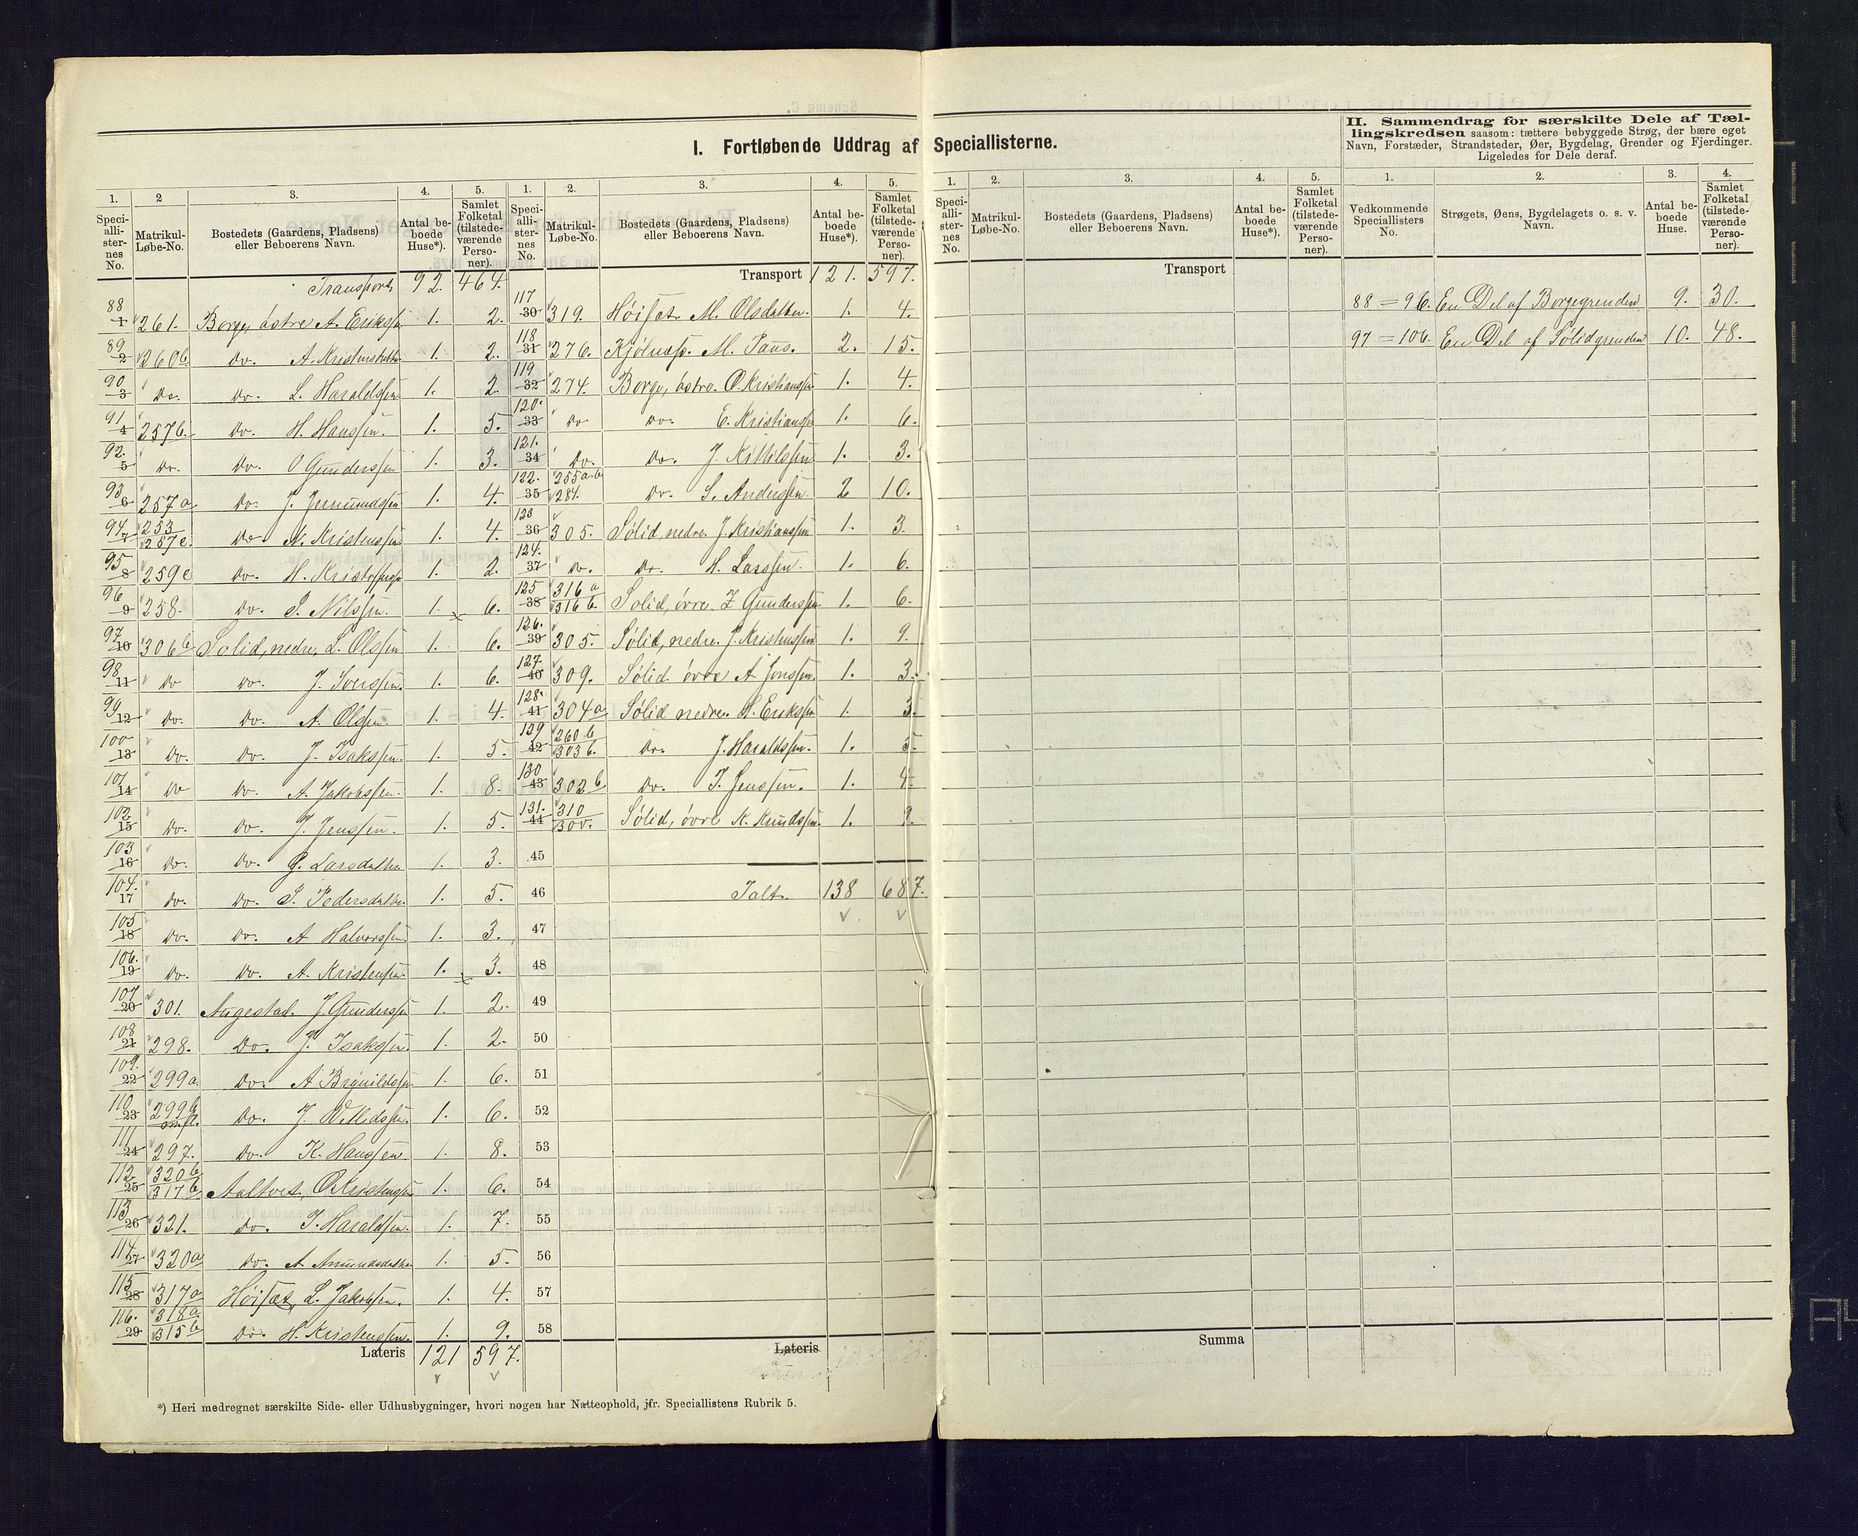 I. Fortløbende Uddrag af Speciallisterne.
II. Sammendrag for særskilte Dele af Tællingskredsen saasom: tættere bebyggede Strøg, der bære eget Navn, Forstæder, Strandsteder, Øer, Bygdelag, Grender og Fjerdinger. Ligeledes for Dele deraf.
1. 2 3. 4. 5. 1. 2. 3. 4. 5. 1. 2. 3. 4. 5. 1. 2. 3. 4.
Speciallisternes No. Matrikul-Løbe-No. Bostedets (Gaardens, Pladsens) eller Beboerens Navn. Antal beboede Huse*). Samlet Folketal (tilstedeværende Personer).
Speciallisternes No. Matrikul-Løbe-No. Bostedets (Gaardens, Pladsens) eller Beboerens Navn. Antal beboede Huse*). Samlet Folketal (tilstedeværende Personer).
Speciallisternes No. Matrikul-Løbe-No. Bostedets (Gaardens, Pladsens) eller Beboerens Navn. Antal beboede Huse*). Samlet Folketal (tilstedeværende Personer).
Vedkommende Speciallisters No. Strøgets, Øens, Bygdelagets o. s. v. Navn. Antal beboede Huse. Samlet Folketal (tilstedeværende Personer).
Transport 92. 464.
88 1 261. Borge, østre A. Eriksen 1. 2.
89 2 260b do. A. Kristensdatter 1. 2.
90 3 do. do. L. Haraldsen 1. 2.
91 4 257b. do. H. Hanssen. 1. 5.
92. 5 do. do. O Gunderssen 1. 3.
93 6 257a do. J. 1. 4.
94 7 253 257c. do. N. Kristenssen 1. 4.
95 8 259c do. H. 1. 2.
96 9 258. do. S. Nilssen. 1. 6.
97 10 306b Solid, nedre, L. Olssen 1. 6.
98 11 do do. J. Iverssen. 1. 6.
99 12 do. do. A. Olssen 1. 4.
100 13 do. do. J. Isakssen. 1. 5.
101 14 do do. A. Jakobssen. 1. 8.
102 15 do. do. J. Jenssen. 1. 5.
103 16 do. do. G. Larsdatter 1. 3.
104. 17 do. do. S. Pedersdatter 1. 5.
105 18 do. do. A. Halvorssen. 1. 3.
106. 19 do. do. A. Kristenssen. 1. 3.
107 20 301. Augestad. J. Gunderssen 1. 2.
108 21 298. do. J. Isakssen. 1. 2.
109. 22 299a. do. A 1. 6.
110 23 299b do. J. 1. 6.
111 24 297. do. K. Hanssen. 1. 8.
112. 25 320b 317b Aaltvet, O. Kristenssen 1. 6.
113 26 321. do. J. Haraldssen. 1. 7.
114 27 320a do. A. Amundsdatter 1. 5.
115 28 317a Høisæt, L. Jakobssen. 1. 4.
116. 29 318a 315b do. H. Kristenssen. 1. 9.
Lateris 121 597.
Transport 121. 597.
117 30 319. Høisæt. M. Olsdatter. 1. 4.
118 31 276. Kjølnæs. M. 2. 15.
119 32 274. Borge, østre. O. Kristianssen 1. 4.
120. 33 do do. E. Kristianssen 1. 6.
121. 34 do. do. J. Kittilssen 1. 3.
122. 35 255a.b 284. do. S. Anderssen. 2 10.
123 36 305. Sølid, nedre J. Kristianssen 1. 3.
124. 37 do. do. H. Larssen. 1. 6.
125 38 316a 316b Solid, øvre Z Gunderssen 1. 6.
126. 39 305. Sølid, nedre. J. Kristenssen 1. 9.
127. 40 309. Sølid. øvre A. Jonssen. 1. 3.
128. 41 304a Sølid nedre. S. Erikssen 1. 3.
129 42 260b 303b. do. J. Haraldssen. 1. 5.
130 43 302b do. J. Jenssen. 1. 4.
131. 44 310 300. Sølid, øvre N. Knudssen. 1. 9.
45
46 Ialt. 138 687.
47
48
49
50
51
52
53
54
55
56
57
58
Lateris
Transport
Summa
88 = 96. En Del af Borgegrenden 9. 30.
97 = 106. En Del af Sølidgrenden 10. 48.
*) Heri medregnet særskilte Side- eller Udhusbygninger, hvori nogen har Natteophold, jfr. Speciallistens Rubrik 5.